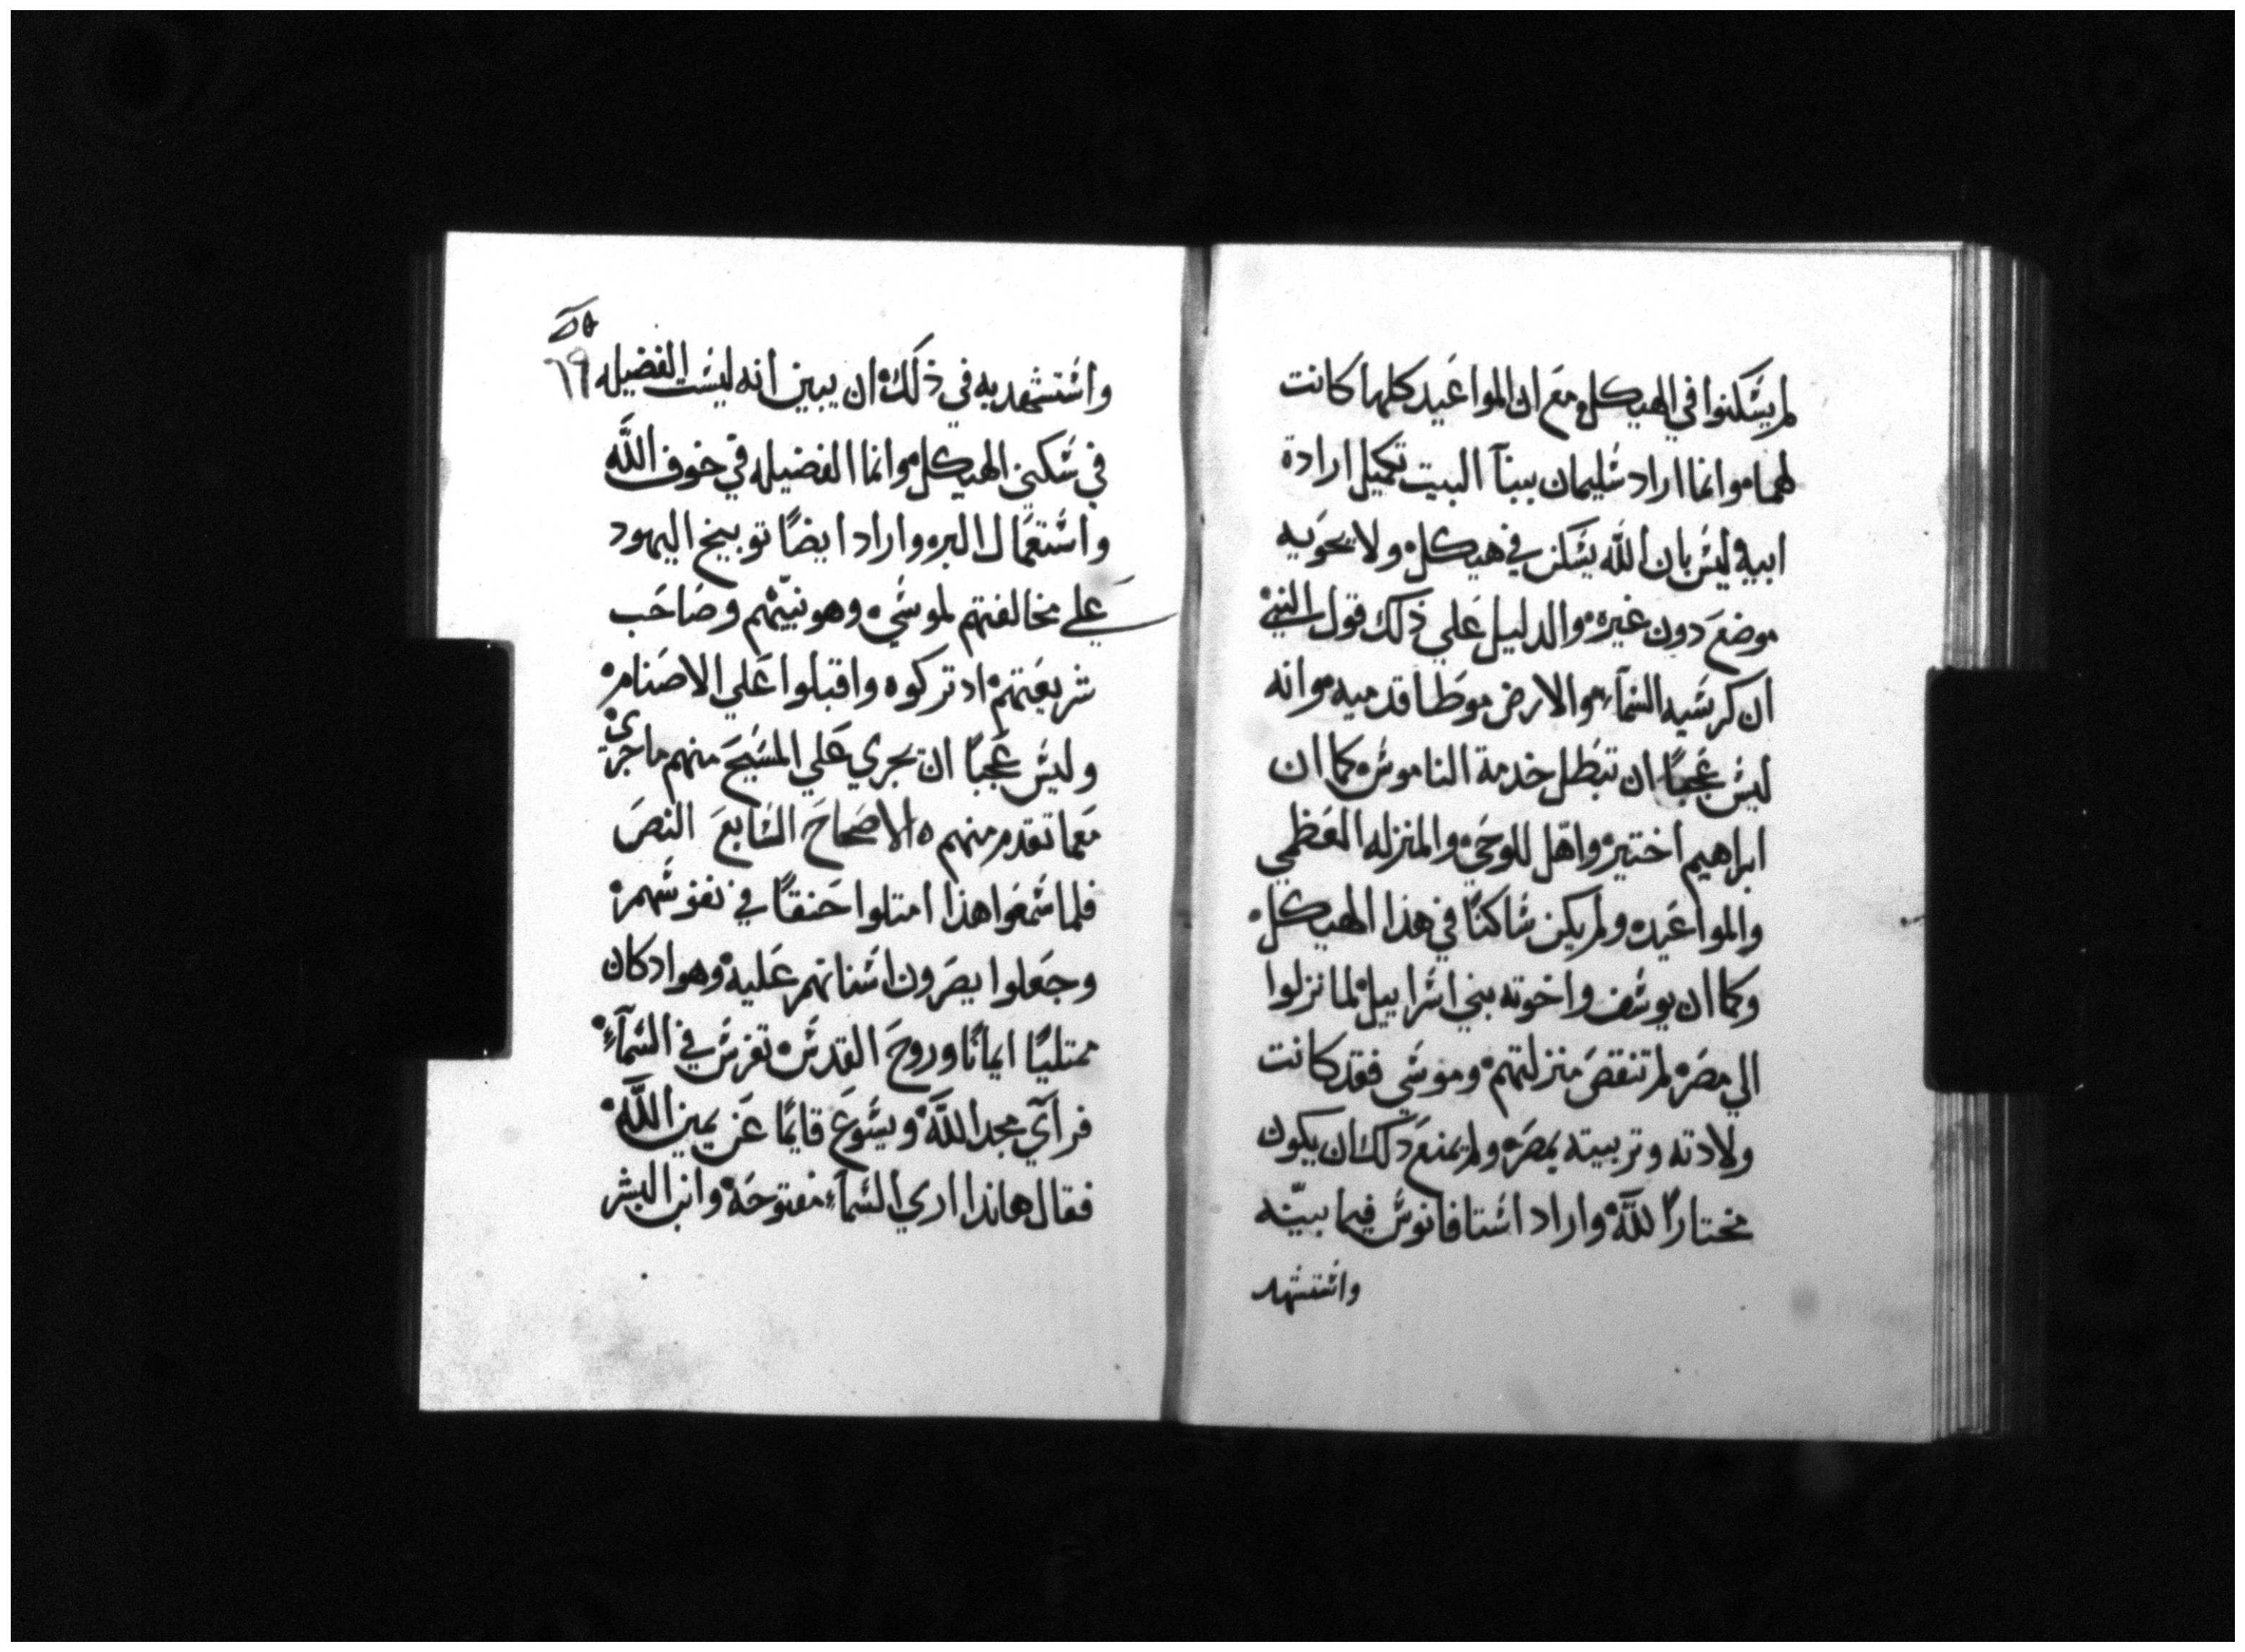 لم يشكنوا في الهيكل مع ان المواعيد كلها كانت
لهما وانما اراد شليمان ببنآ البيت تكميل ارادة
ابيه ليش بان الله يشكن في هيكل ولا يحويه
موضع دون غيره والدليل علي ذلك قول النبي
ان كرشيه الشمآء والارض موطا قدميه وانه
ليش عجبًا ان تبطل خدمة الناموش كما ان
ابراهيم اختير واهّل للوحي والمنزله العظمي
والمواعيد ولم يكن شاكنًا في هذا الهيكل
وكما ان يوشف واخوته بني اشراييل لما نزلوا
الي مصر لم تنقص منزلتهم وموشي فقد كانت
ولادته وتربيته بمصر ولم يمنع ذلك ان يكون
مختارًا لله واراد اشتافانوش فيما بيّنه
واشتشهد
واشتشهد به في ذلك ان يبين انه ليشت الفضيله
٦٩
في شكني الهيكل وانما الفضيله في خوف الله
واشتعمال البر واراد ايضًا توبيخ اليهود
علي مخالفتهم لموشي وهو نبيّهم وصاحب
شريعتهم اد تركوه واقبلوا علي الاصنام
وليش عجبًا ان يجري علي المشيح منهم ماجري
معما تقدم منهم الاصحاح الشابع النص
فلما شمعوا هذا امتلوا حنقًا في نفوشهم
وجعلوا يصرون اشنانهم عليه وهو اد كان
ممتليًا ايمانًا وروح القدش تفرش في الشمآء
فرآي مجد الله ويشوع قايمًا عن يمين الله
فقال هاندا اري الشمآء مفتوحة وابن البشر